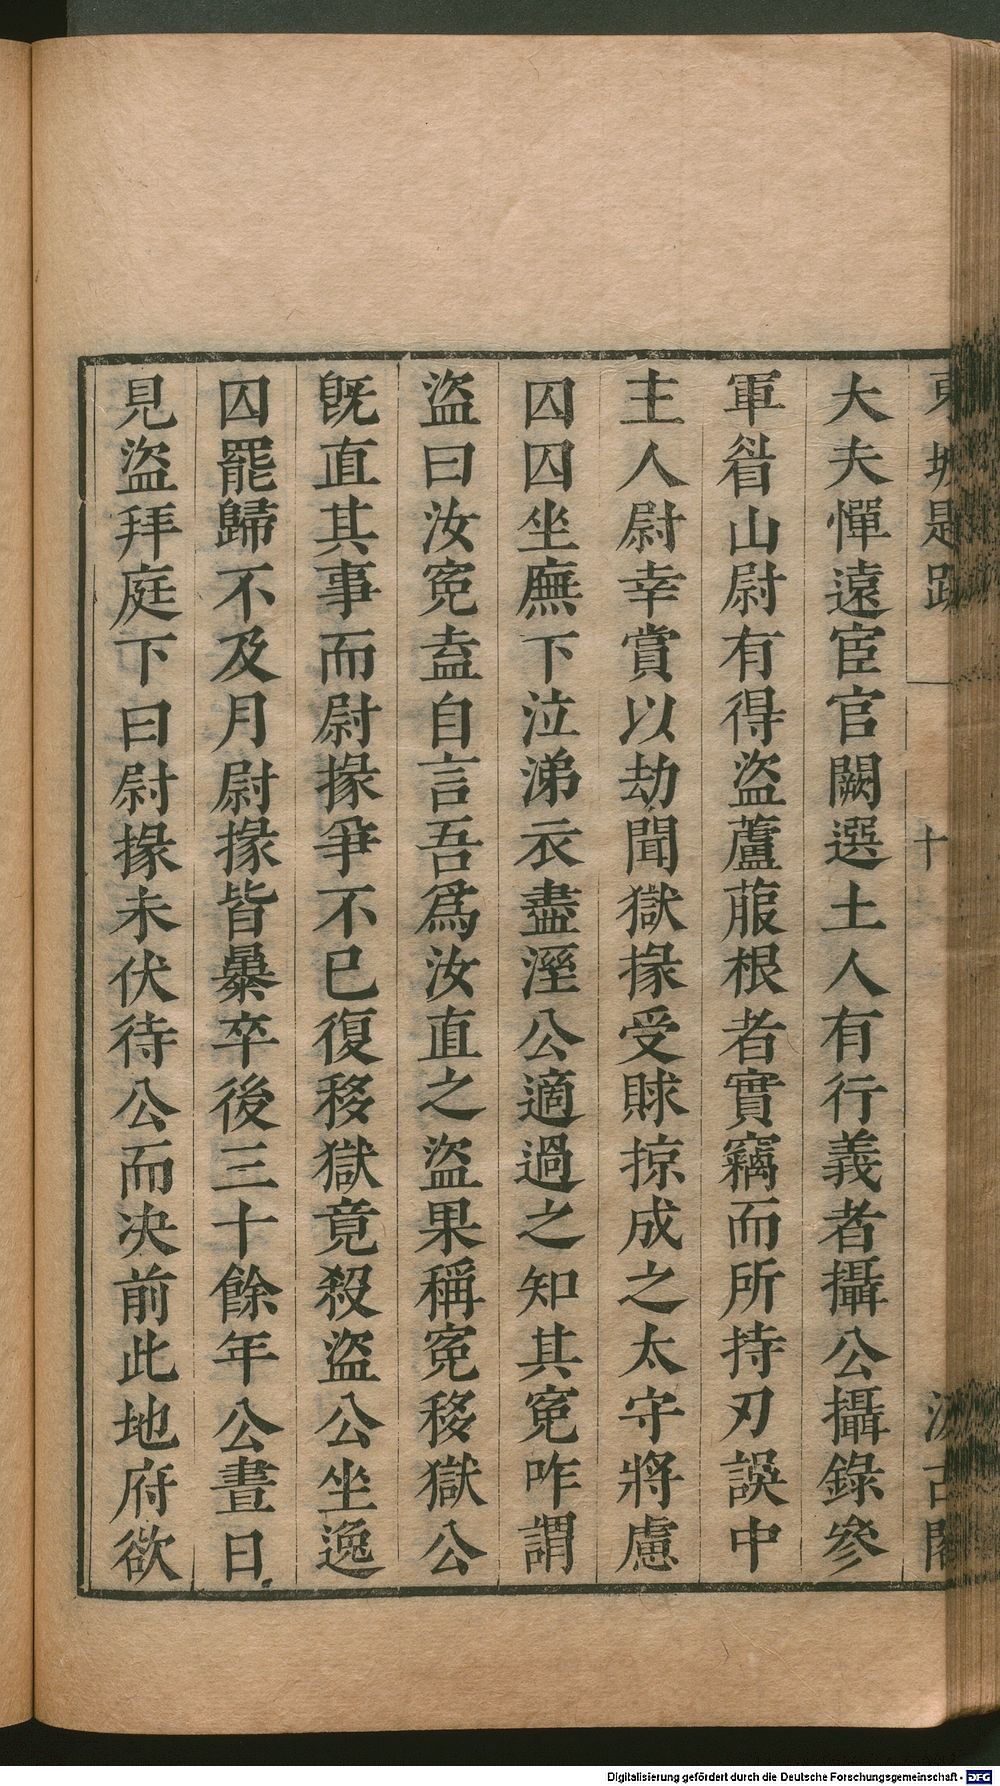 東坡題跋 十 汲古閣
大夫憚遠宦官闕選土人有行義者攝公攝錄參
軍眉山尉有得盜蘆菔根者實竊而所持刃誤中
主人尉幸賞以劫聞獄掾受賕掠成之太守將慮
囚囚坐廡下泣涕衣盡溼公適過之知其寃咋謂
盜曰汝寃盍自言吾爲汝直之盜果稱寃移獄公
旣直其事而尉掾爭不已復移獄竟殺盜公坐逸
囚罷歸不及月尉掾皆暴卒後三十餘年公晝日
見盜拜庭下曰尉掾未伏待公而决前此地府欲
Digitalisierung gefördert durch die Deutsche Forschungsgemeinschaft - DFG